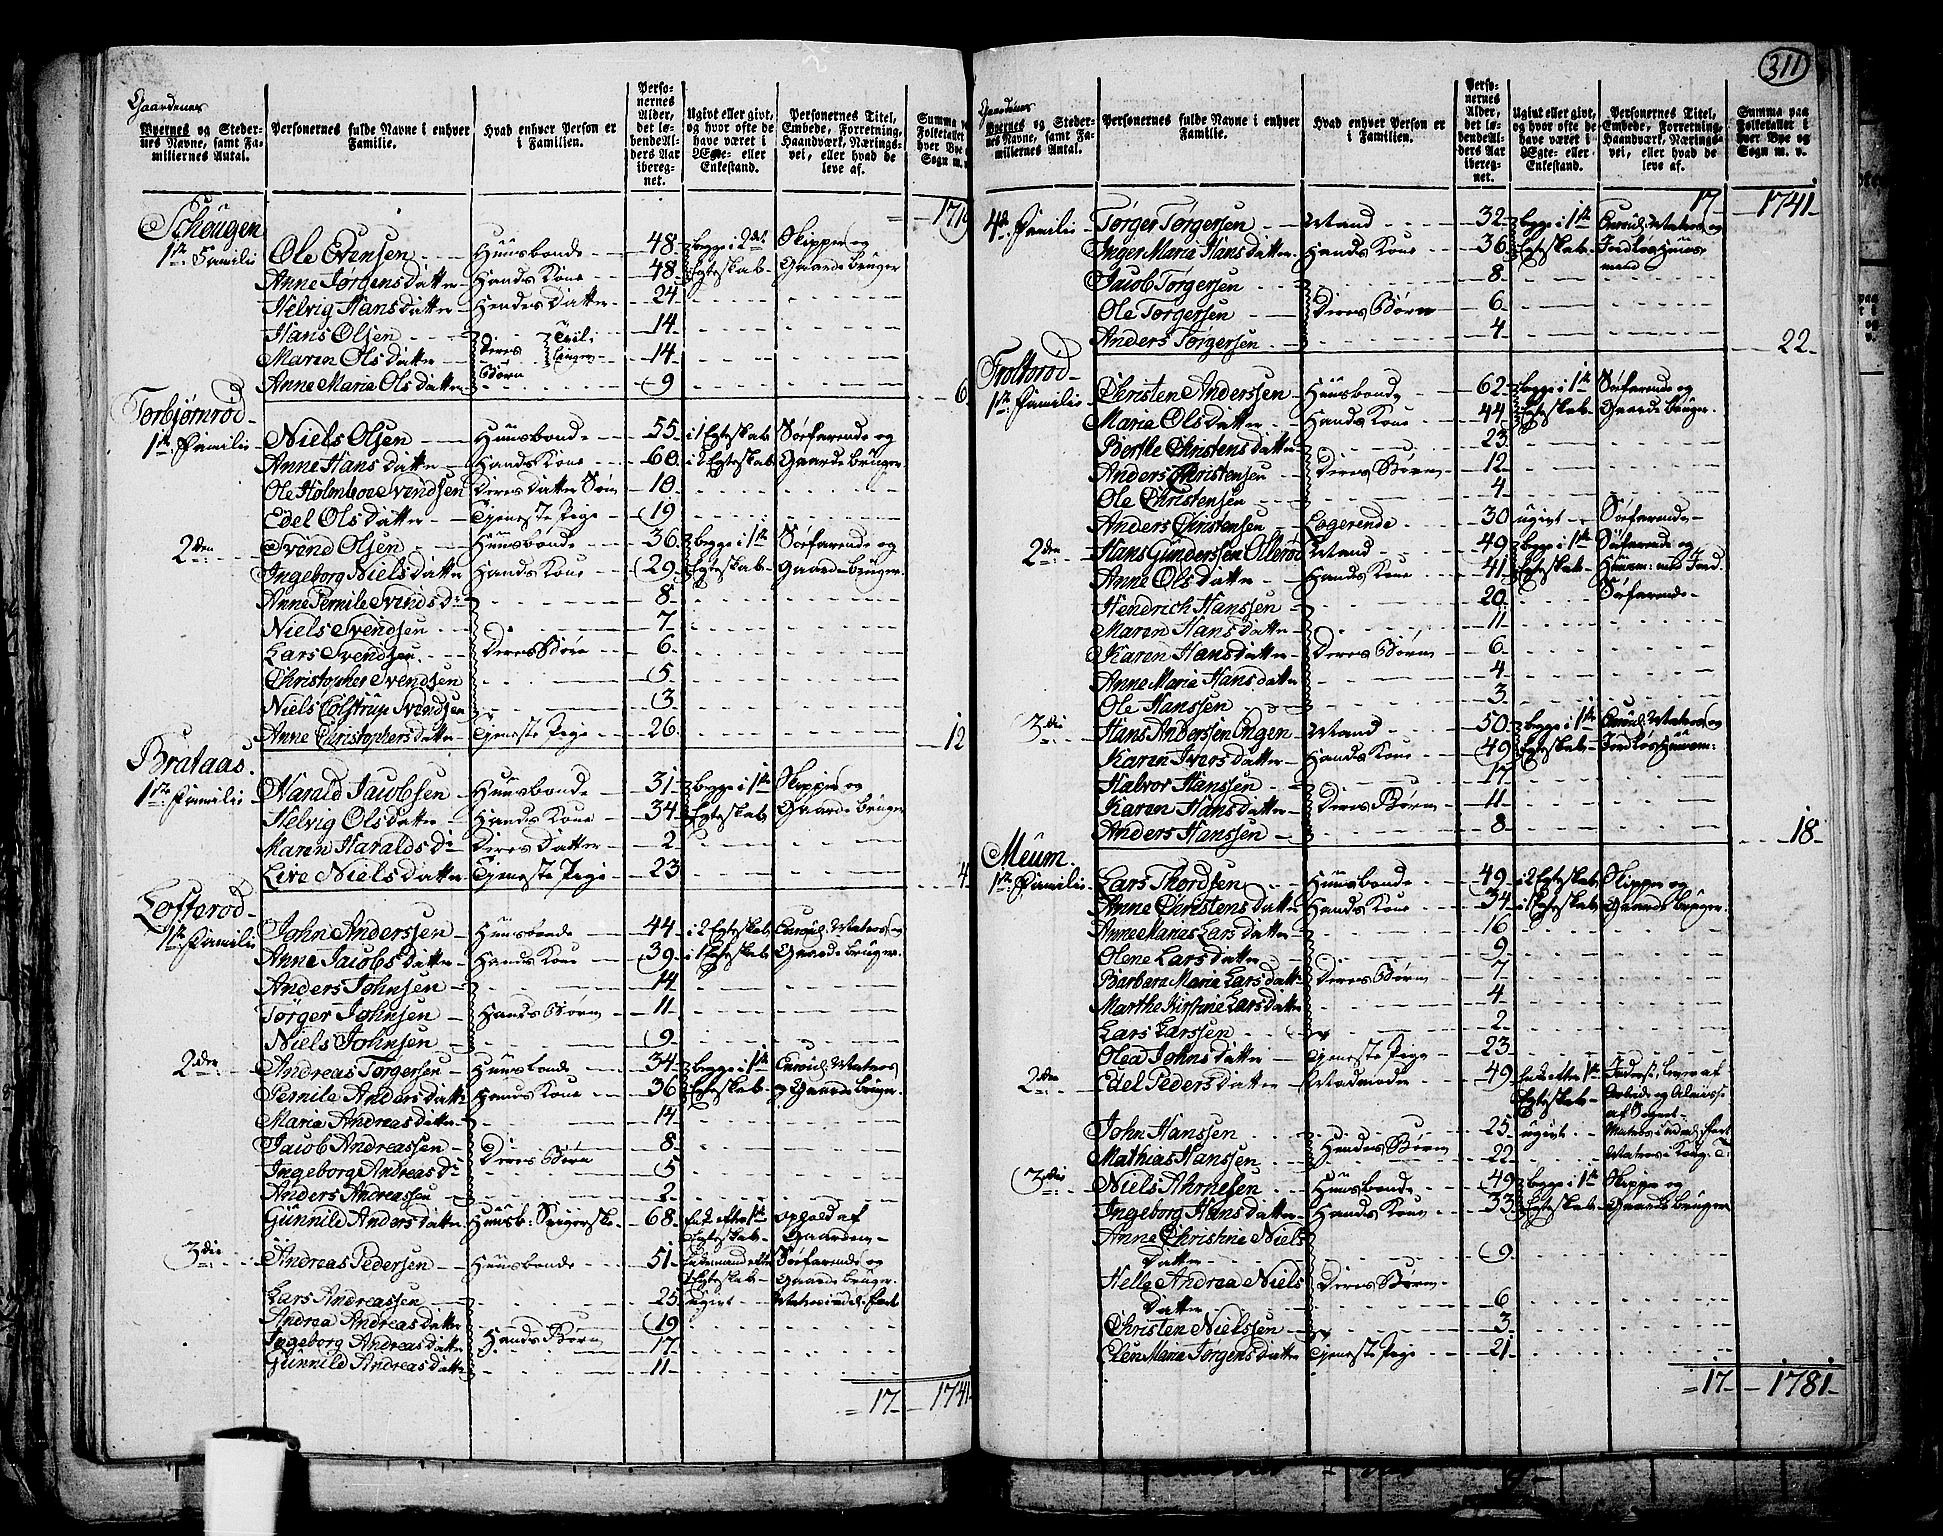 311
Gaardenes
Byernes og Stedernes Navne, samt Familiernes Antal.
Personernes fulde Navne i enhver Familie.
Hvad enhver Person er i Familien.
Personernes Alder, det løbende Alders Aar iberegnet.
Ugivt eller givt, og hvor ofte de have været i Ægte- eller Enkestand.
Personernes Titel, Embede, Forretning, Haandværk, Næringsvei, eller hvad de leve af.
Summa paa Folketallet i hver Bye og Sogn m. v.
1719
Schougen
1ste Familie Ole Evensen Huusbonde 48 begge i 2det Skipper og
Anne Jørgensdatter Hands Kone 48 Egteskab Gaardebruger
Helvig Hansdatter Hendes Datter 24
Hans Olsen Deres Børn Tvillinger 14
Maren Olsdatter 14
Anne Maria Olsdatter 9
6
Torbjørnrød
1ste Familie Niels Olsen Huusbonde 55 i 1 Egteskab Søefarende og
Anne Hansdatter Hands Kone 60 i 2 Egteskab Gaardebruger
Ole Holmboe Svendsen Deres Datter Søn 10
Edel Olsdatter Tjeneste Pige 19
2den Svend Olsen Huusbonde 36 begge i 1ste Søefarende og
Ingeborg Nielsdatter Hands Kone 29 Egteskab Gaardebruger
Anne Pernile Svendsdr 8
Niels Svendsen 7
Lars Svendsen Deres Børn 6
Christopher Svendsen 5
Niels Colstrup Svendsen 3
Anne Christophersdatter Tjeneste Pige 26
12
Brataas
1ste Familie Harald Jacobsen Huusbonde 31 begge i 1ste Skipper og
Helvig Olsdatter Hands Kone 34 Egteskab Gaardebruger
Maren Haraldsdr Deres Datter 2
Live Nielsdatter Tjeneste Pige 23
4
Løfterød
1ste Familie John Anderssen Huusbonde 44 i 2 Egteskab Enroul. Matros og
Anne Jacobsdatter Hands Kone 39 i 1 Egteskab Gaardebruger
Anders Johnsen 14
Tørger Johnsen Hands Børn 11
Niels Johnsen 9
2den Andreas Torgersen Huusbonde 34 begge i 1ste Enroul. Matros
Pernile Andersdatter Hands Kone 36 Egteskab og Gaardebruger
Maria Andreasdatter 14
Jacob Andreassen Deres Børn 8
Ingeborg Andreasdr 5
Anders Andreassen 2
Gunnild Andersdatter Huusb: Svigerske 68 Enke efter 1ste ophold af
Egteskab Gaarden
3die Andreas Pedersen Huusbonde 51 Enkemand efter Søefarende og
Egteskab Gaardebruger
Lars Andreassen 25 ugivt Matros
Andrea Andreasdatter 19
Ingeborg Andreasdatter Hands Børn 17
Gunnild Andreasdatter 11
17 1741
Gaardenes
Byernes og Stedernes Navne, samt Familiernes Antal.
Personernes fulde Navne i enhver Familie.
Hvad enhver Person er i Familien.
Personernes Alder, det løbende Alders Aar iberegnet.
Ugivt eller givt, og hvor ofte de have været i Ægte- eller Enkestand.
Personernes Titel, Embede, Forretning, Haandværk, Næringsvei, eller hvad de leve af.
Summa paa Folketallet i hver Bye og Sogn m. v.
17 1741
4de Familie Tørger Tørgersen Mand 32 begge i 1ste Enroul. Matros og
Inger Maria Hansdatter Hands Kone 36 Egteskab Jordløs Huusmand
Jacob Tørgersen 8
Ole Torgersen Deres Børn 6
Anders Tørgersen 4
22
Trolterød
1ste Familie Christen Anderssen Huusbonde 62 begge i 1ste Søefarende og
Maria Olsdatter Hands Kone 44 Egteskab Gaardebruger
Berthe Christensdatter 23
Anders Christensen Deres Børn 12
Ole Christensen 4
Anders Christensen Logerende 30 ugivt Søefarende
2den Hans Gunderssen Ollerød Mand 49 begge i 1ste Søefarende og
Anne Olsdatter Hands Kone 41 Egteskab Huusm: med Jord
Hendrich Hanssen 20 Søefarende
Maren Hansdatter 11
Karen Hansdatter Deres Børn 6
Anne Maria Hansdatter 4
Ole Hanssen 3
3die Hans Anderssen Engen Mand 50 begge i 1ste Enroul. Matros og
Karen Iversdatter Hands Kone 49 Egteskab Jordløs Huusm:
Halvor Hanssen 17
Karen Hansdatter Deres Børn 11
Anders Hanssen 8
18
Meum
1ste Familie Lars Thordsen Huusbonde 49 i 2 Egteskab Skipper og
Anne Christensdatter Hands Kone 34 i 1 Egteskab Gaardebruger
Anne Marias Larsdatter 16
Olene Larsdatter 9
Barbara Maria Larsdatter Deres Børn 7
Marthe Kirstine Larsdatter 4
Lars Larssen 2
Olea Johnsdatter Tjeneste Pige 23
2den Edel Pedersdatter Madmoder 49 Enke efter 1ste Inderst, lever af
Egteskab Arbeide og Almisse
af Sognet
John Hanssen Hendes Børn 25 ugivt Matros
Mathias Hanssen 22 Matros i Kong. T:
3die Niels Ahrnesen Huusbonde 49 begge i 1ste Skipper og
Ingeborg Hansdatter Hands Kone 33 Egteskab Gaardebruger
Anne Christine Niels
datter 9
Helle Andrea Niels Deres Børn
datter 6
Christen Nielssen 3
Elen Maria Jørgensdatter Tjeneste Pige 21
17 1781